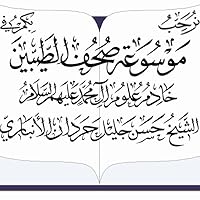 نرحب بكم في
موسوعة صحف الطيبين
خادم علوم آل محمد عليهم السلام
الشيخ حسن جليل حردان الأنباري